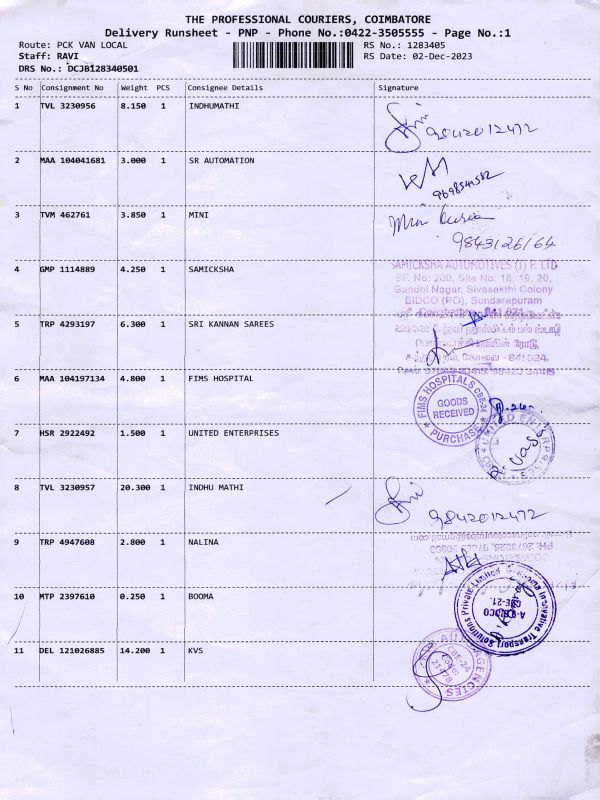 THE PROFESSIONAL COURIERS, COIMBATORE
Delivery Runsheet - PNP - Phone No.:0422-3505555 - Page No.:1
Route: PCK VAN LOCAL RS No.: 1283405
Staff: RAVI RS Date: 02-Dec-2023
DRS No.: DCJB128340501
S No Consignment No Weight PCS Consignee Details Signature
1 TVL 3230956 8.150 1 INDHUMATHI
9842012472
2 MAA 104041681 3.000 1 SR AUTOMATION
3 TVM 462761 3.850 1 MINI
9843126164
4 GMP 1114889 4.250 1 SAMICKSHA
SAMICKSHA AUTOMOTIVES (I) P. LTD
SF. No: 200, Site No: 18, 19, 20,
Gandhi Nagar, Sivasakthi Colony
SIDCO (PO), Sundarapuram
5 TRP 4293197 6.300 1 SRI KANNAN SAREES
6 MAA 104197134 4.800 1 FIMS HOSPITAL
FIMS HOSPITALS CBE-24
GOODS
RECEIVED
PURCHASE
7 HSR 2922492 1.500 1 UNITED ENTERPRISES
8 TVL 3230957 20.300 1 INDHU MATHI
9842012472
9 TRP 4947608 2.800 1 NALINA
10 MTP 2397610 0.250 1 BOOMA
Innovative Transport Solutions Private Limited
SIDCO
CBE-21.
11 DEL 121026885 14.200 1 KVS
AGENCIES
CBE-24